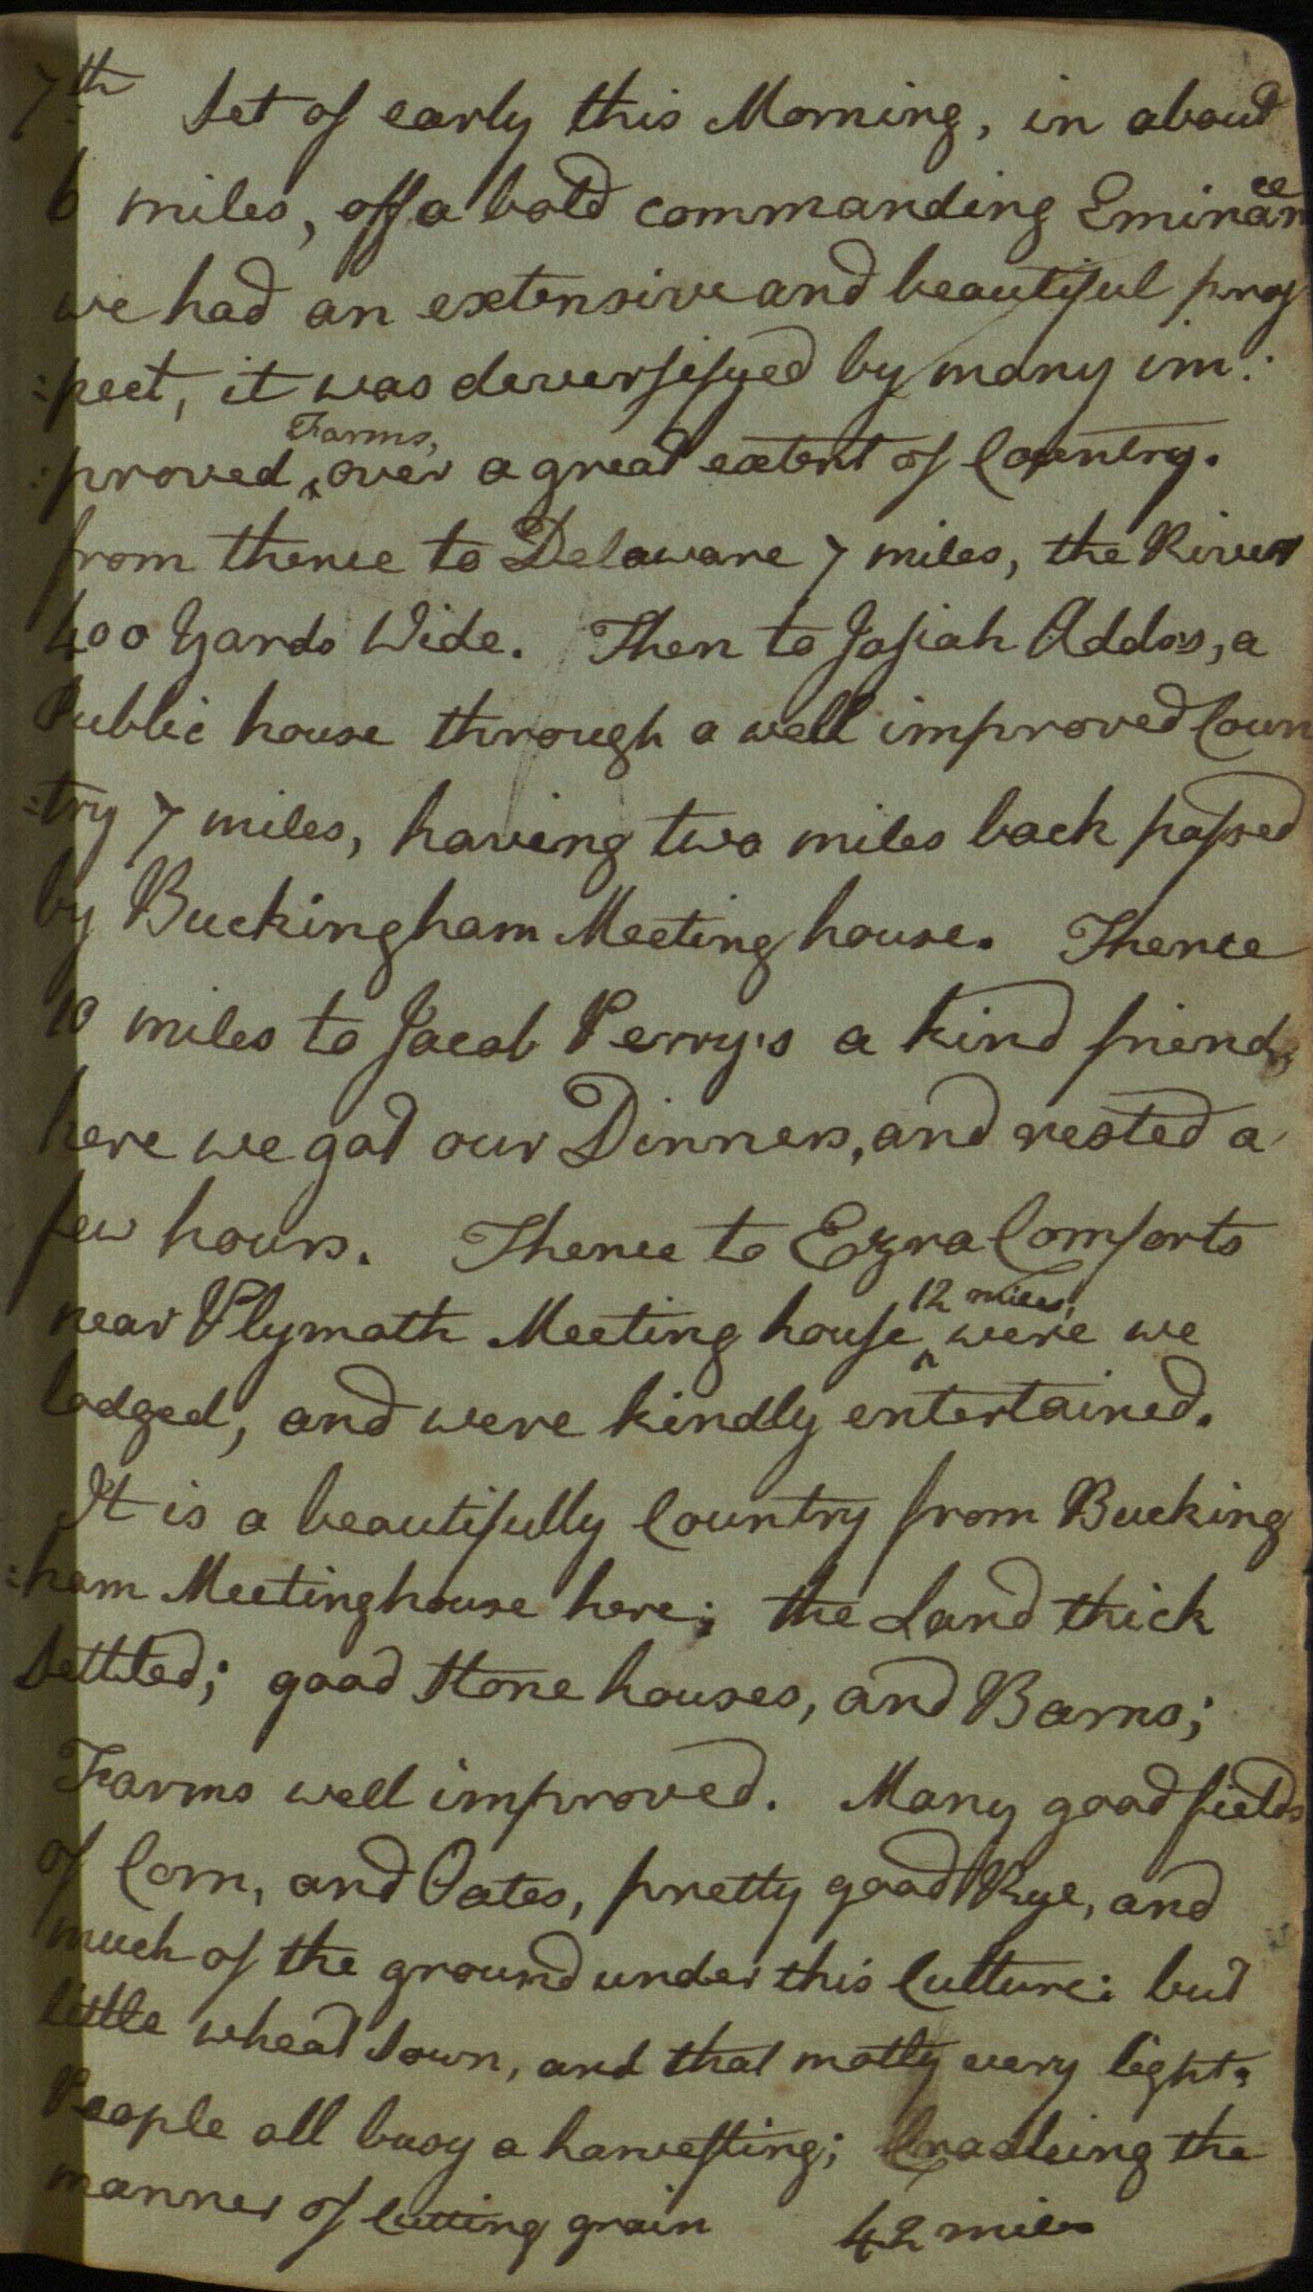 7th Set of early this Morning, in about
6 miles, off a bold commanding Eminance
we had an extensive and beautiful pros
:pect, it was deversifyed by many im:
:proved Farms, over a great extent of Country.
from thence to Delaware 7 miles, the River
400 Yards Wide. Then to Josiah Addos, a
Public house through a well improved Coun
=try 7 miles, having two miles back passed
by Buckingham Meeting house. Thence
10 miles to Jacob Perry's a kind friend,
here we got our Dinners, and rested a
few hours. Thence to Ezra Comforts
near Plymoth Meeting house 12 miles, were we
lodged, and were kindly entertained.
It is a beautifully Country from Bucking
:ham Meetinghouse here; the Land thick
Settled; good Stone houses, and Barns;
Farms well improved. Many good fields
of Corn, and Oates, pretty good Rye, and
much of the ground under this Culture: but
little wheat Sown, and that mostly very light.
People all busy a harvesting; Cradleing the
manner of Cutting grain 42 miles